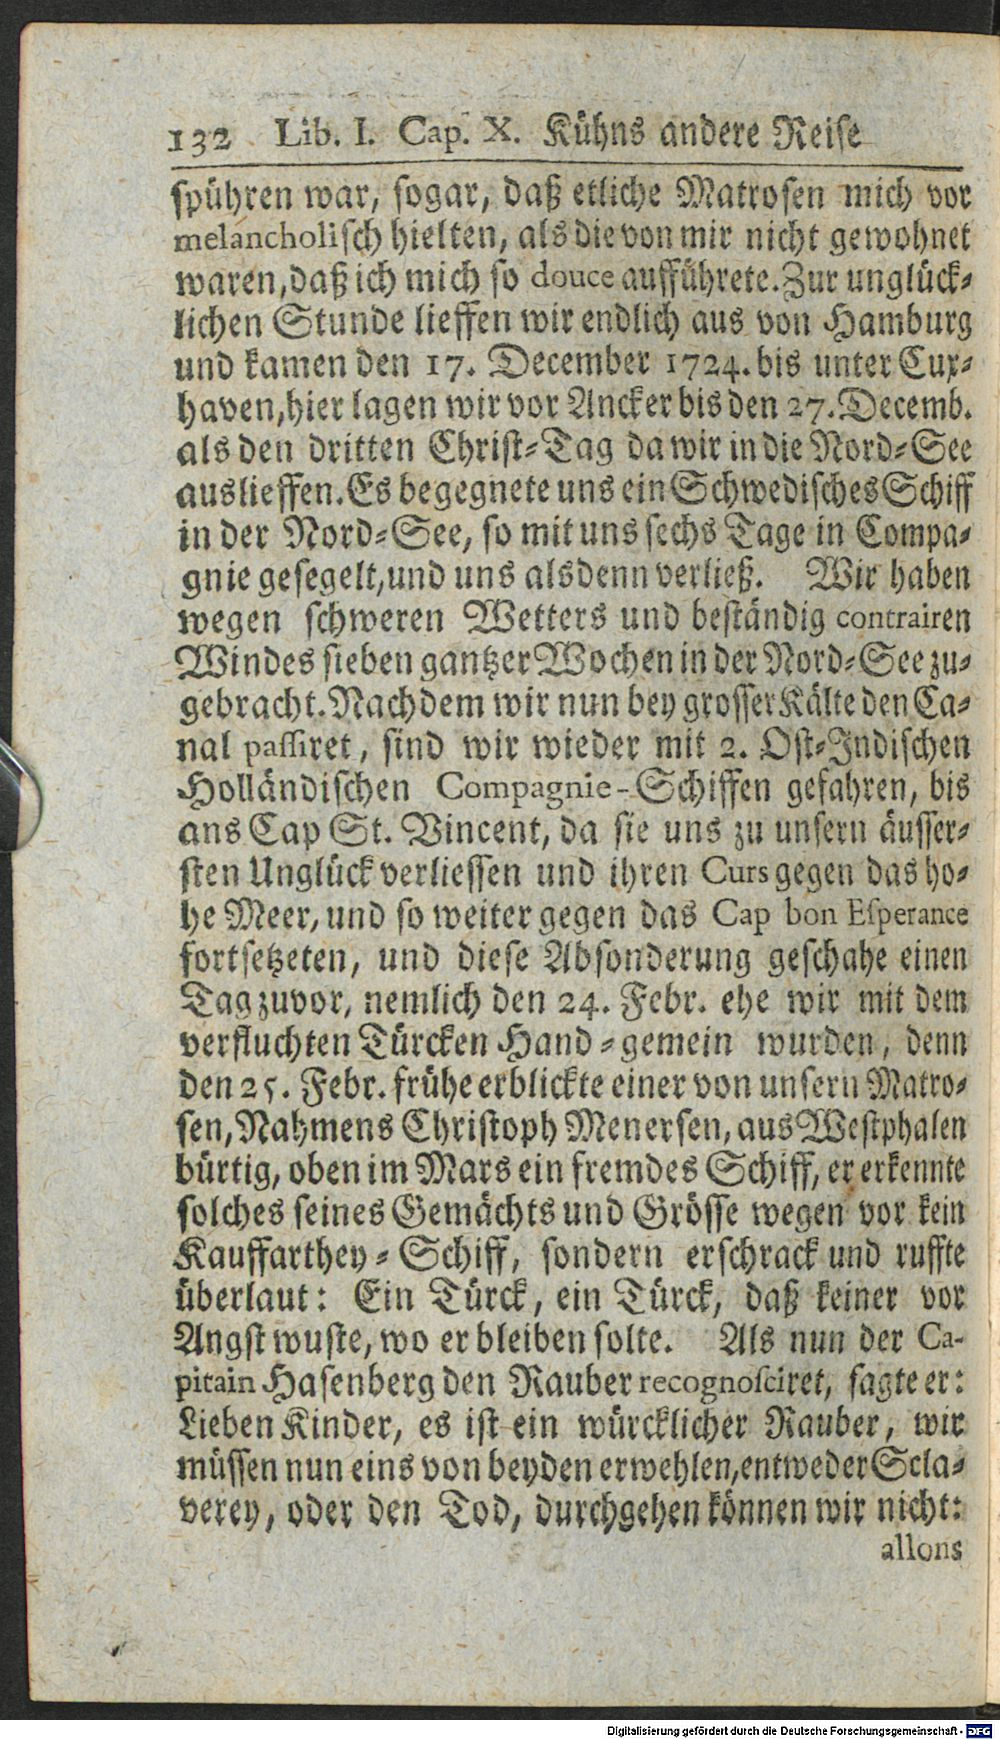 132 Lib. I. Cap. X. Kühns andere Reise
spühren war, sogar, daß etliche Matrosen mich vor
melancholisch hielten, als die von mir nicht gewohnet
waren, daß ich mich so douce aufführete. Zur unglück-
lichen Stunde lieffen wir endlich aus von Hamburg
und kamen den 17. December 1724. bis unter Cux-
haven, hier lagen wir vor Ancker bis den 27. Decemb.
als den dritten Christ-Tag da wir in die Nord-See
auslieffen. Es begegnete uns ein Schwedisches Schiff
in der Nord-See, so mit uns sechs Tage in Compa-
gnie gesegelt, und uns alsdenn verließ. Wir haben
wegen schweren Wetters und beständig contrairen
Windes sieben gantzer Wochen in der Nord-See zu-
gebracht. Nachdem wir nun bey grosser Kälte den Ca-
nal passiret, sind wir wieder mit 2. Ost-Indischen
Holländischen Compagnie-Schiffen gefahren, bis
ans Cap St. Vincent, da sie uns zu unsern äusser-
sten Unglück verliessen und ihren Curs gegen das ho-
he Meer, und so weiter gegen das Cap bon Esperance
fortsetzeten, und diese Absonderung geschahe einen
Tag zuvor, nemlich den 24. Febr. ehe wir mit dem
verfluchten Türcken Hand-gemein wurden, denn
den 25. Febr. frühe erblickte einer von unsern Matro-
sen, Nahmens Christoph Menersen, aus Westphalen
bürtig, oben im Mars ein fremdes Schiff, er erkennte
solches seines Gemächts und Grösse wegen vor kein
Kauffarthey-Schiff, sondern erschrack und ruffte
überlaut: Ein Türck, ein Türck, daß keiner vor
Angst wuste, wo er bleiben solte. Als nun der Ca-
pitain Hasenberg den Rauber recognosciret, sagte er:
Lieben Kinder, es ist ein würcklicher Rauber, wir
müssen nun eins von beyden erwehlen, entweder Scla-
verey, oder den Tod, durchgehen können wir nicht:
allons
Digitalisierung gefördert durch die Deutsche Forschungsgemeinschaft - DFG